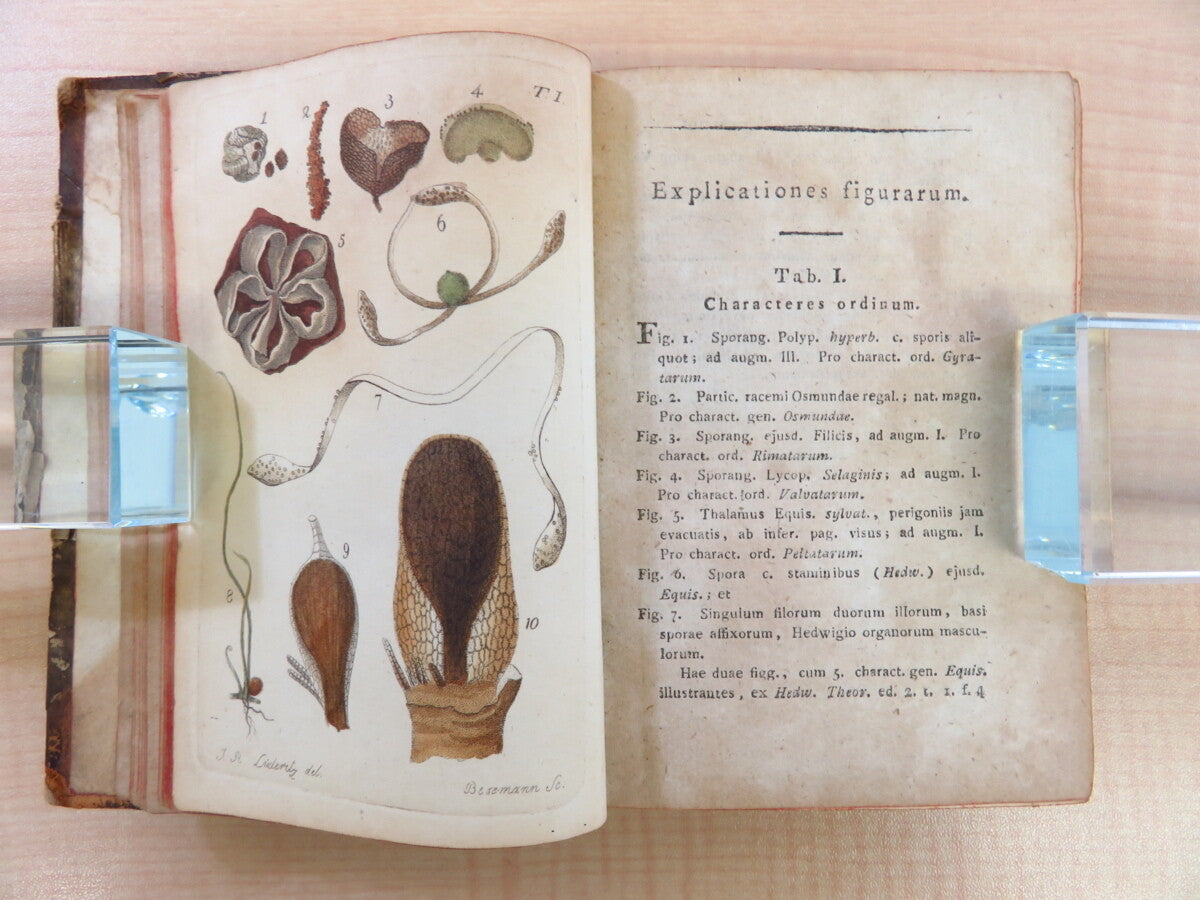 1
2
3
4
T I.
5
6
7
8
9
10
del.
Besemann Sc.
Explicationes figurarum.
Tab. I.
Characteres ordinum.
Fig. 1. Sporang. Polyp. hyperb. c. sporis ali-
quot; ad augm. III. Pro charact. ord. Gyra-
tarum.
Fig. 2. Partic. racemi Osmundae regal.; nat. magn.
Pro charact. gen. Osmundae.
Fig. 3. Sporang. ejusd. Filicis, ad augm. I. Pro
charact. ord. Rimatarum.
Fig. 4. Sporang. Lycop. Selaginis; ad augm. I.
Pro charact. ord. Valvatarum.
Fig. 5. Thalamus Equis. sylvat., perigoniis jam
evacuatis, ab infer. pag. visus; ad augm. I.
Pro charact. ord. Peltatarum.
Fig. 6. Spora c. staminibus (Hedw.) ejusd.
Equis.; et
Fig. 7. Singulum filorum duorum illorum, basi
sporae affixorum, Hedwigio organorum mascu-
lorum.
Hae duae figg., cum 5. charact. gen. Equis.
illustrantes, ex Hedw. Theor. ed. 2. t. 1. f. 4